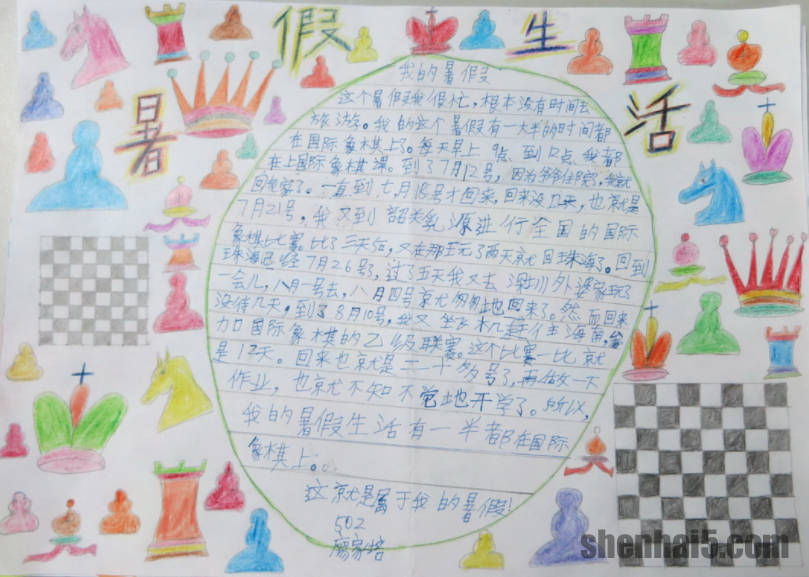 暑假生活
我的暑假
这个暑假我很忙，根本没有时间去
旅游。我的这个暑假有一大半的时间都
在国际象棋上了。每天早上9点到12点，我都
在上国际象棋课。到了7月12号，因为爷爷住院了，我就
回老家了。一直到七月18号才回来，回来没几天，也就是
7月21号，我又到韶关乳源进行全国的国际
象棋比赛。比了三天后，又在那里玩了两天就回珠海了。回到
珠海已经7月26号了，过了五天我又去深圳外婆家玩了
一会儿，八月一号去，八月四号就匆匆地回来了。然而回来
没待几天，到了8月10号，我又坐飞机去往海南，参
加国际象棋的乙级联赛。这个比赛一比就
是12天。回来也就是二十多号了，再做一下
作业，也就不知不觉地开学了。所以，
我的暑假生活有一半都在国际
象棋上。
这就是属于我的暑假！
502
廖家培
shenhai5.com